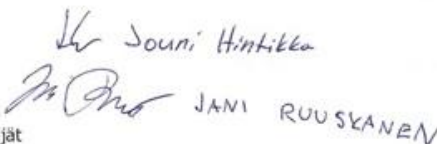 Jouni Hintikka
JANI RUUSKANEN
jät